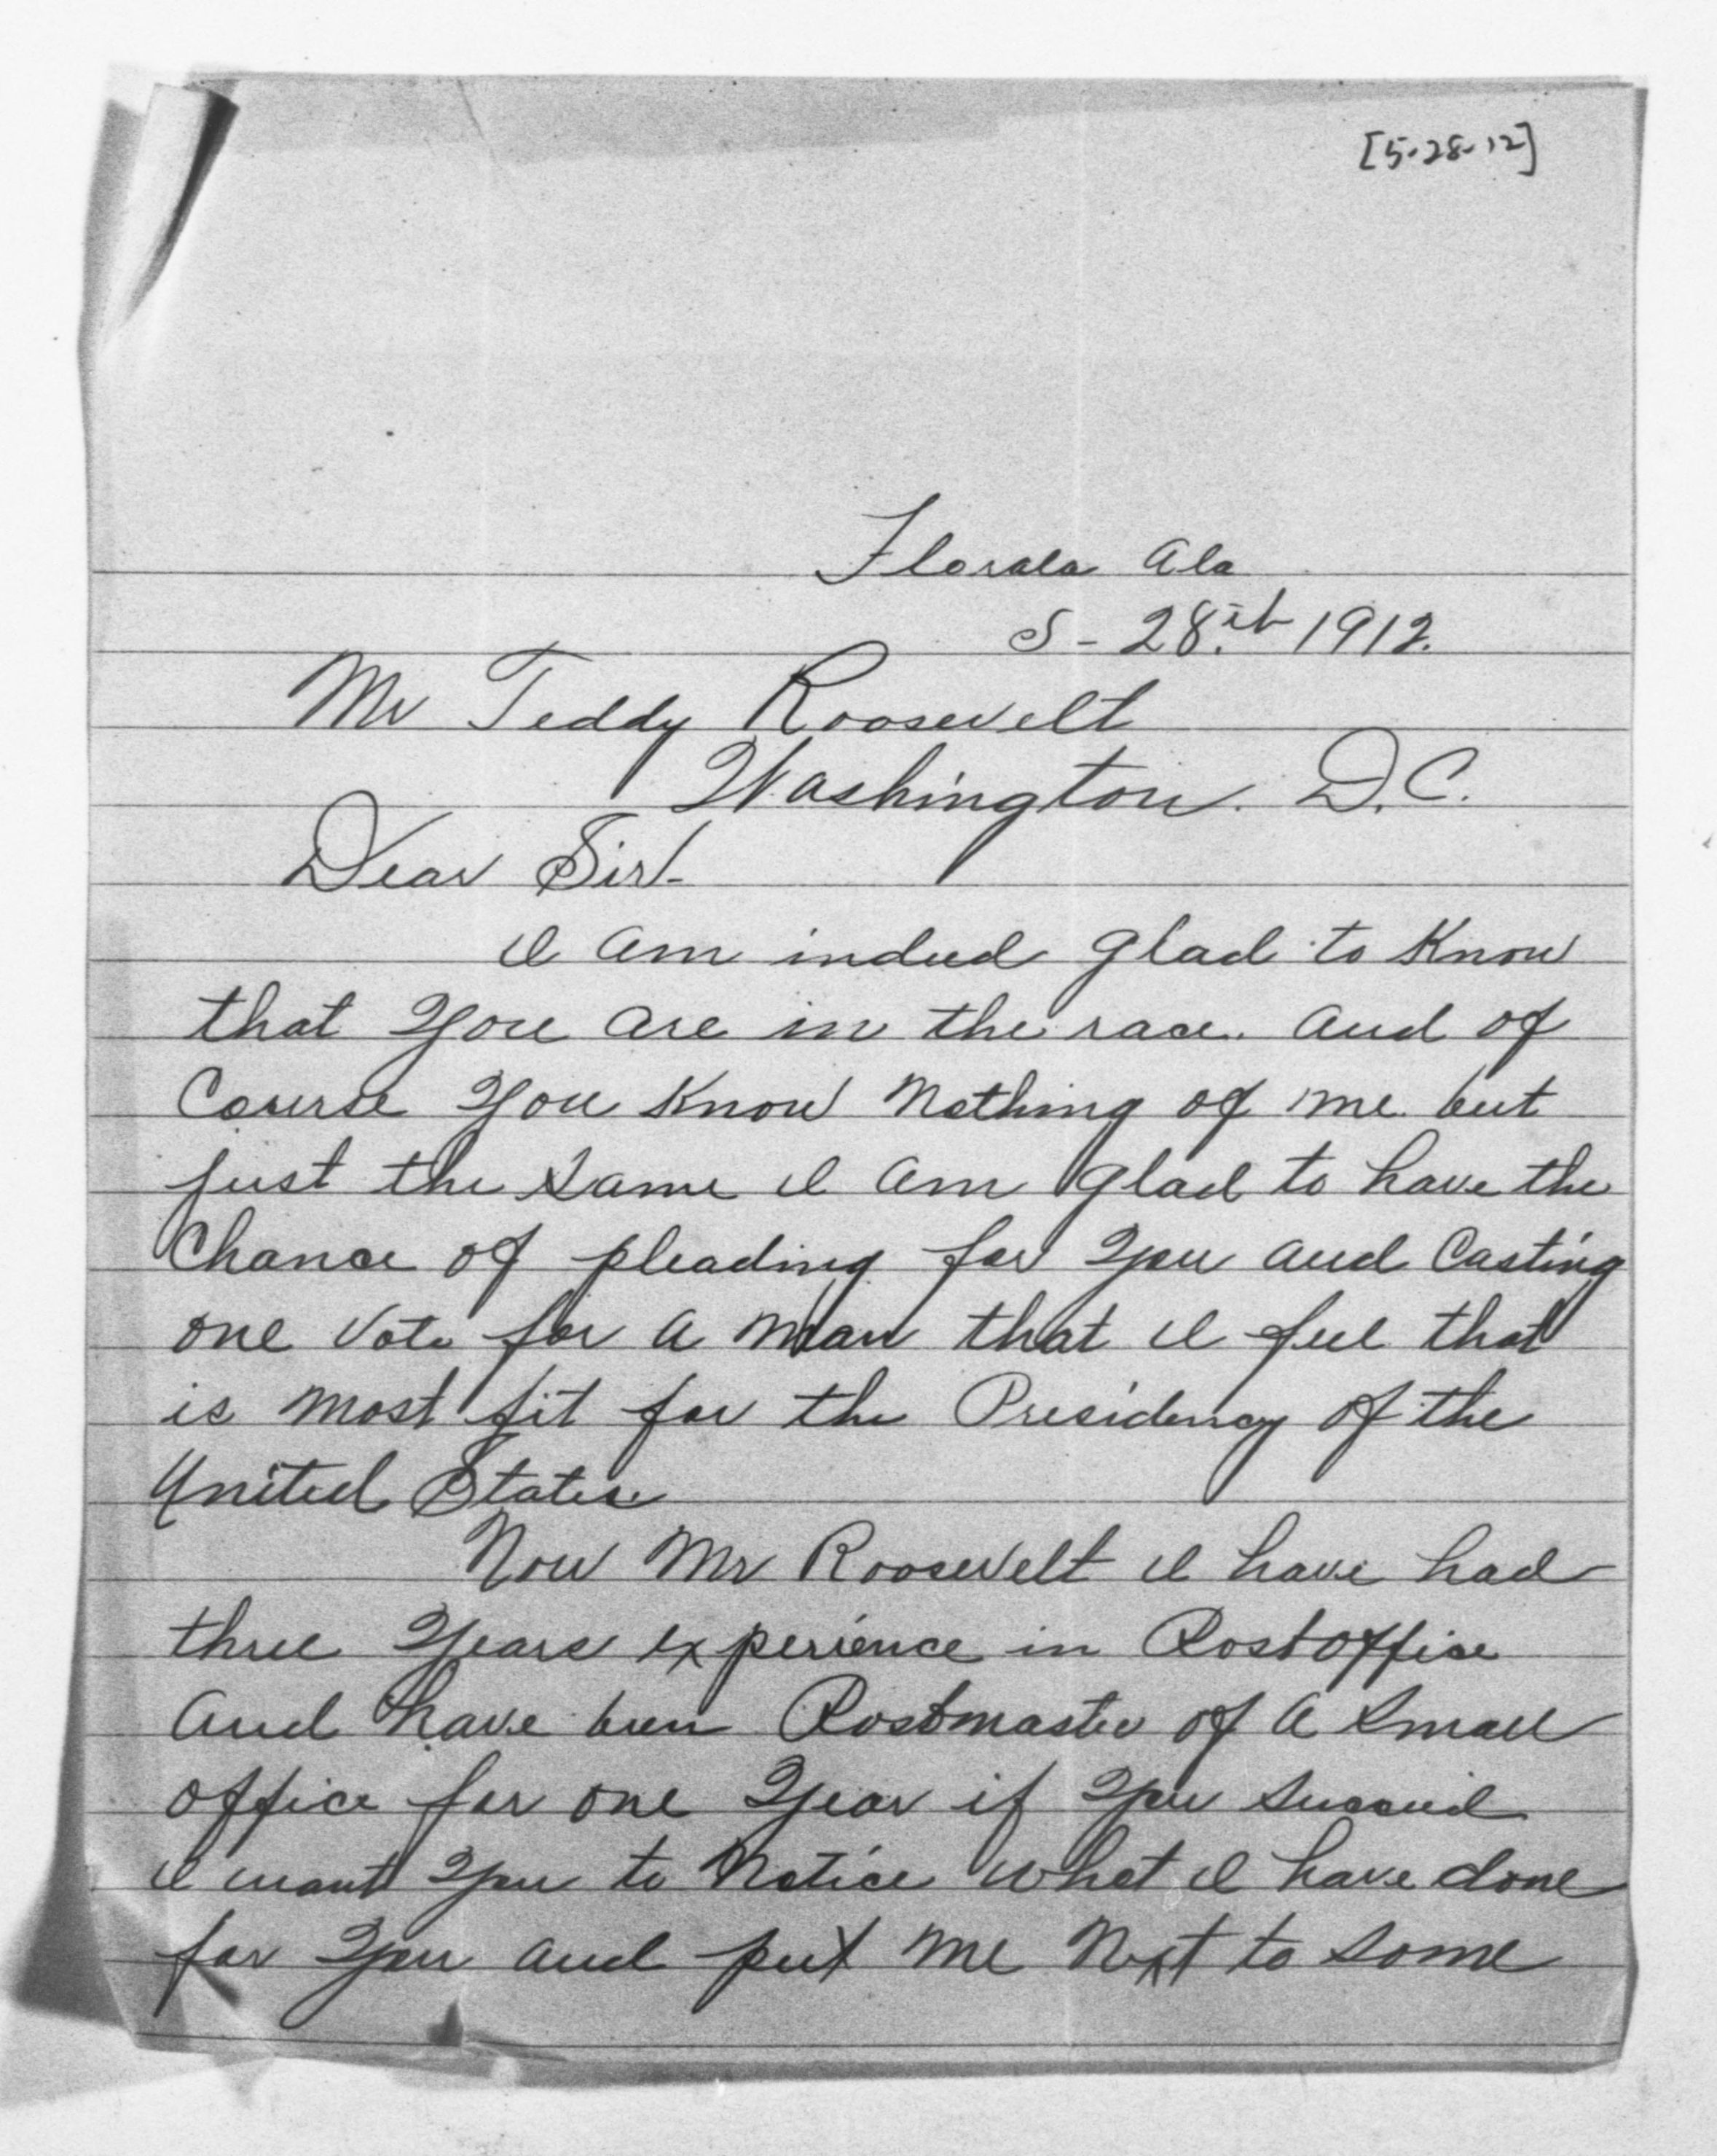 [5-28-12]
Florala Ala
5-28.th 1912.
Mr Teddy Roosevelt
Washington. D.C.
Dear Sir-
I am indeed glad to Know
that you are in the race. and of
Course you Know Nothing of me but
just the same I am glad to have the
Chance of pleading for you and Casting
one vote for a man that I feel that
is most fit for the Presidency of the
United States
Now Mr Roosevelt I have had
three years experience in Postoffice
and have been Postmaster of a small
office for one year if you succeed
I want you to notice what I have done
for you and put me next to some